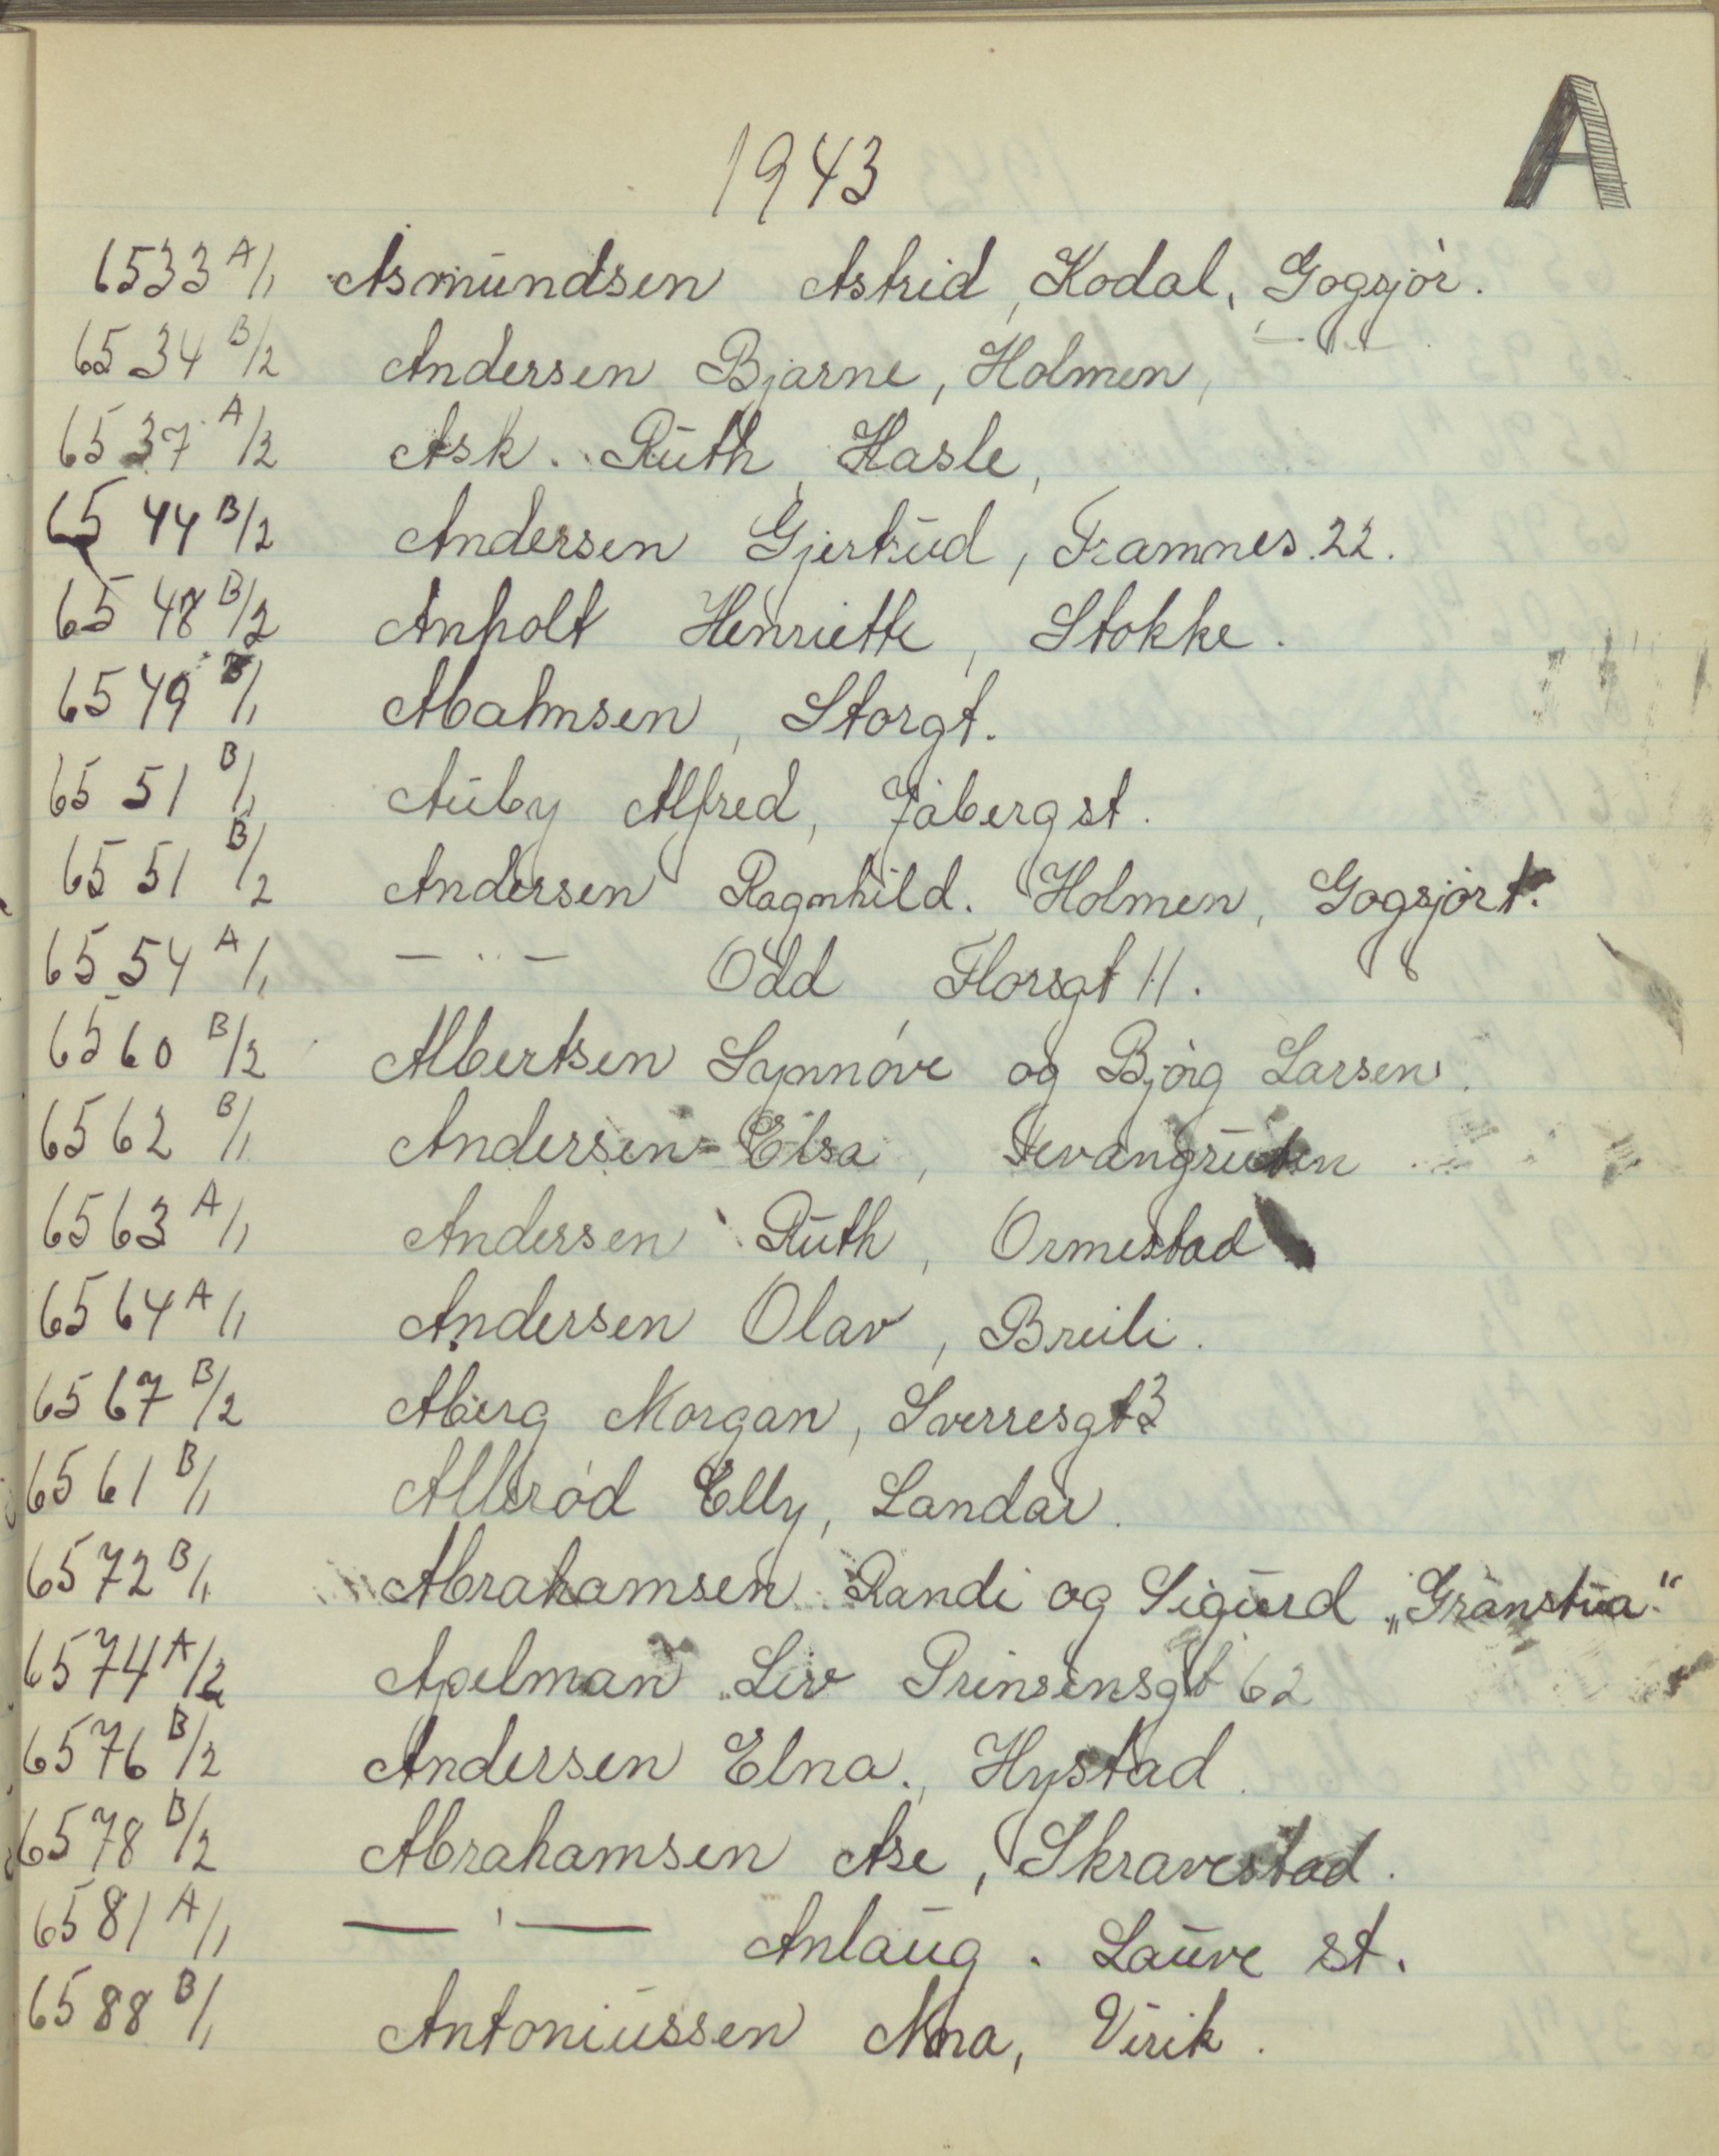 A
1943
6533 A/1 Asmundsen Astrid, Kodal, Gogsjør.
6534 B/2 Andersen Bjarne, Holmen, — " —
6537 A/2 Ask. Ruth, Hasle,
6544 B/2 Andersen Gjertrud, Framnes 22.
6548 B/2 Anholt Henriette, Stokke.
6549 B/1 Abalmsen, Storgt.
6551 B/1 Auby Alfred, Jåberg st.
6551 B/2 Andersen Ragnhild. Holmen, Gogsjørt.
6554 A/1 — " — Odd Florsgt 11.
6560 B/2 Albertsen Synnøve og Bjørg Larsen.
6562 B/1 Andersen - Elsa,
6563 A/1 Andersen Ruth, Ormestad
6564 A/1 Andersen Olav, Breili.
6567 B/2 Aberg Morgan, Sverresgt 3
6561 B/1 Allerød Elly, Landar.
6572 B/1 Abrahamsen Randi og Sigurd „Granstua"
6574 A/2 Apelman Liv Prinsensgt 62
6576 B/2 Andersen Elna., Hystad.
6578 B/2 Abrahamsen Åse, Skravestad.
6581 A/1 — ' — Anlaug. Lauve st.
6588 B/1 Antoniussen Anna, Virik.